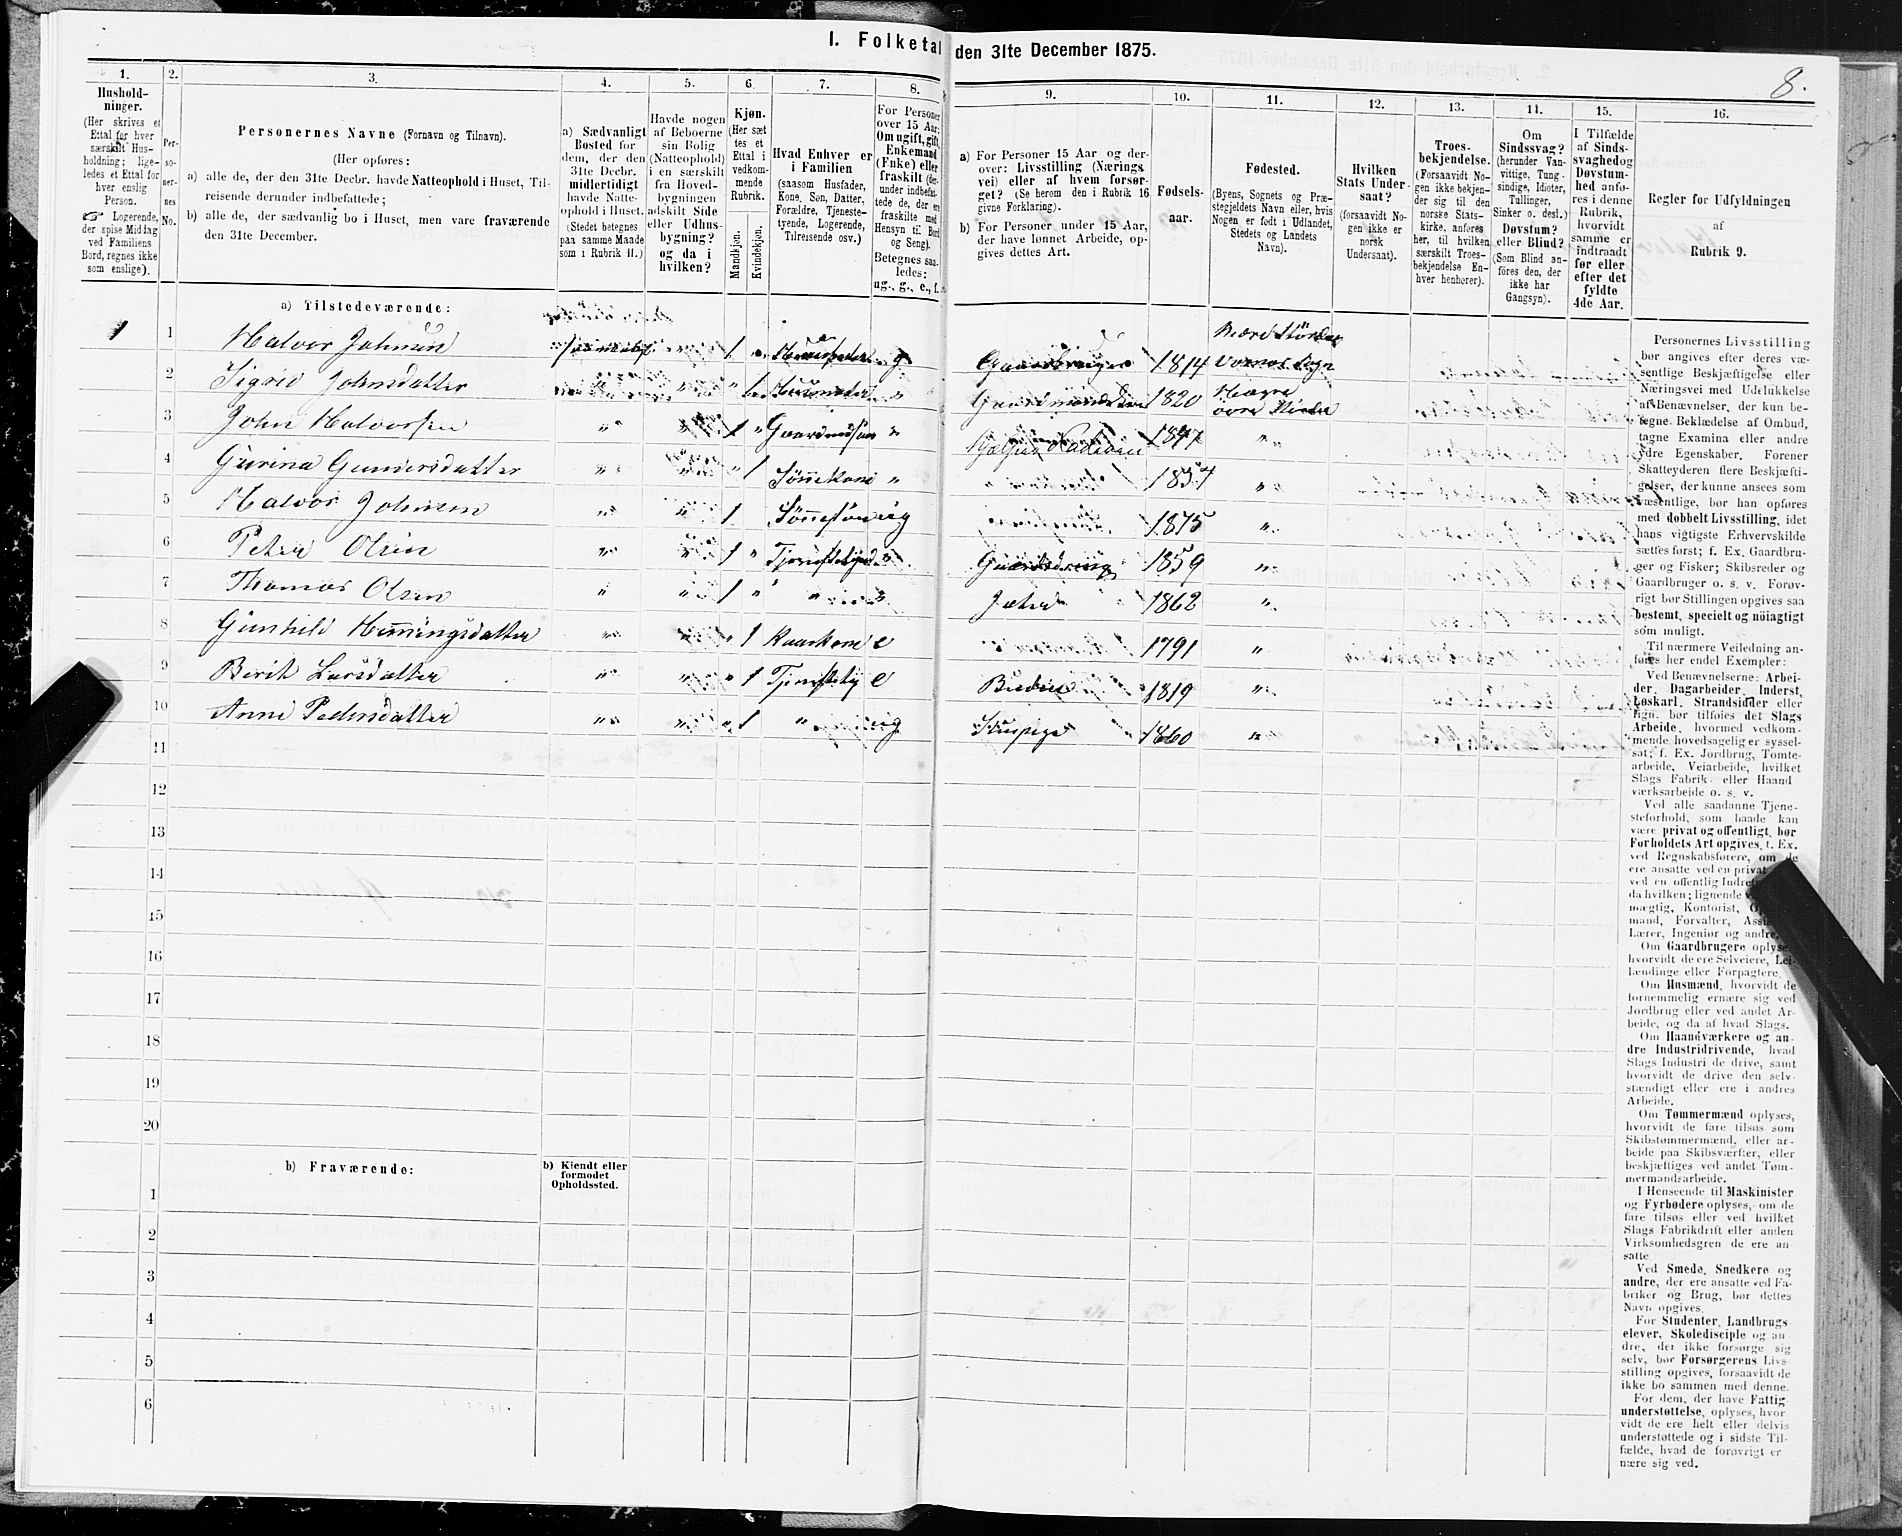 I. Folketal den 31te December 1875.
8.
1.
Hushold-
ninger.
(Her skrives et
Ettal for hver
særskilt Hus-
holdning; lige-
ledes et Ettal for
hver enslig
Person.
☞ Logerende,
der spise Middag
ved Familiens
Bord, regnes ikke
som enslige).
2.
Per-
so-
ner-
nes
No.
3.
Personernes Navne (Fornavn og Tilnavn).
(Her opføres:
a) alle de, der den 31te Decbr. havde Natteophold i Huset, Til-
reisende derunder indbefattede;
b) alle de, der sædvanlig bo i Huset, men vare fraværende
den 31te December.
4.
a) Sædvanligt
Bosted for
dem, der den
31te Decbr.
midlertidigt
havde Natte-
ophold i Huset.
(Stedet betegnes
paa samme Maade
som i Rubrik 11.)
5.
Havde nogen
af Beboerne
sin Bolig
(Natteophold)
i en særskilt
fra Hoved-
bygningen
adskilt Side
eller Udhus-
bygning?
og da i
hvilken?
6.
Kjøn.
(Her sæt
tes et
Ettal i
vedkom-
mende
Rubrik.
Mandkjøn.
Kvindekjøn.
7.
Hvad Enhver er
i Familien
(saasom Husfader,
Kone, Søn, Datter,
Forældre, Tjeneste-
tyende, Logerende,
Tilreisende osv.)
8.
For Personer
over 15 Aar:
Om ugift, gift,
Enkemand
(Enke) eller
fraskilt (der-
under indbefat-
tede de, der ere
fraskilte med
Hensyn til Bord
og Seng).
Betegnes saa-
ledes:
ug., g., e., f.
9.
a) For Personer 15 Aar og der-
over: Livsstilling (Nærings-
vei) eller af hvem forsør-
get? (Se herom den i Rubrik 16
givne Forklaring).
b) For Personer under 15 Aar,
der have lønnet Arbeide, op-
gives dettes Art.
10.
Fødsels-
aar.
11.
Fødested.
(Byens, Sognets og Præ-
stegjeldets Navn eller, hvis
Nogen er født i Udlandet,
Stedets og Landets
Navn).
12.
Hvilken
Stats Under-
saat?
(forsaavidt No-
gen ikke er
norsk
Undersaat).
13.
Troes-
bekjendelse.
(Forsaavidt No-
gen ikke bekjen-
der sig til den
norske Stats-
kirke, anføres
her, til hvilken
særskilt Troes-
bekjendelse En-
hver henhører).
14.
Om
Sindssvag?
(herunder Van-
vittige, Tung-
sindige, Idioter,
Tullinger,
Sinker o. desl.)
Døvstum?
eller Blind?
(Som Blind an-
føres den, der
ikke har
Gangsyn).
15.
I Tilfælde
af Sinds-
svaghed og
Døvstum-
hed anfø-
res i denne
Rubrik,
hvorvidt
samme er
indtraadt
før eller
efter det
fyldte
4de Aar.
16.
Regler for Udfyldningen
af
Rubrik 9.
a) Tilstedeværende:
1 1 Halvor Johnsen 1 g Gaardbruger 1814
2 Sigrid Johnsdatter " 1820
3 John Halvorsen " " 1 " Gaardmdsøn " 1847 "
4 Gurina Gundersdatter " " " 1 Sønnekone " "
5 Halvor Johnsen " " 1 Sønnesøn ug 1875 "
6 Peter Olsen " " 1 " " 1859 "
7 Thomas Olsen " " 1 " " " 1862 "
8 Gunhild Henningsdatter " " " 1 Kaarkone e 1791 "
9 Berit Larsdatter " " " 1 e Budeie 1819 "
10 Anne Pedersdatter " " " 1 " ug 1860 "
11
12
13
14
15
16
17
18
19
20
b) Fraværende:
b) Kjendt eller
formodet
Opholdssted.
1
2
3
4
5
6
Personernes Livsstilling
bør angives efter deres væ-
sentlige Beskjæftigelse eller
Næringsvei med Udelukkelse
af Benævnelser, der kun be-
tegne Beklædelse af Ombud,
tagne Examina eller andre
ydre Egenskaber. Forener
Skatteyderen flere Beskjæfti-
gelser, der kunne ansees som
væsentlige, bør han opføres
med dobbelt Livsstilling, idet
hans vigtigste Erhvervskilde
sættes først; f. Ex. Gaardbru-
ger og Fisker; Skibsreder og
Gaardbruger o. s. v. Forøv-
rigt bør Stillingen opgives saa
bestemt, specielt og nöiagtigt
som muligt.
Til nærmere Veiledning an-
føres her endel Exempler:
Ved Benævnelserne: Arbei-
der, Dagarbeider, Inderst,
Løskarl, Strandsidder eller
lign. bør tilføies det Slags
Arbeide, hvormed vedkom-
mende hovedsagelig er syssel-
sat; f. Ex. Jordbrug, Tomte-
arbeide, Veiarbeide, hvilket
Slags Fabrik- eller Haand
værksarbeide o. s. v.
Ved alle saadanne Tjene-
steforhold, som baade kan
være privat og offentligt, bør
Forholdets Art opgives, t. Ex.
ved Regnskabsførere, om de
ere ansatte ved en privat
ved en offentlig Indret
da hvilken; lignende
mægtig, Kontorist,
mand, Forvalter, Assi
Lærer, Ingeniør og andre.
Om Gaardbrugere oplyse
hvorvidt de ere Selveiere, Lei-
lændinge eller Forpagtere.
Om Husmænd, hvorvidt de
fornemmelig ernære sig ved
Jordbrug eller ved andet Ar-
beide, og da af hvad Slags.
Om Haandværkere og an-
dre Industridrivende, hvad
Slags Industri de drive, samt
hvorvidt de drive den selv-
stændigt eller ere i andres
Arbeide.
Om Tømmermænd oplyses,
hvorvidt de fare tilsøs som
Skibstømmermænd, eller ar-
beide paa Skibsværfter, eller
beskjæftiges ved andet Tøm-
mermandsarbeide.
I Henseende til Maskinister
og Fyrbødere oplyses, om de
fare tilsøs eller ved hvilket
Slags Fabrikdrift eller anden
Virksomhedsgren de ere an-
satte.
Ved Smede, Snedkere og
andre, der ere ansatte ved Fa-
briker og Brug, bør dettes
Navn opgives.
For Studenter, Landbrugs-
elever, Skoledisciple og an-
dre, der ikke forsørge sig
selv, bør Forsørgerens Livs-
stilling opgives, forsaavidt de
ikke bo sammen med denne.
For dem, der have Fattig-
understøttelse, oplyses, hvor
vidt de ere helt eller delvis
understøttede og i sidste Til-
fælde, hvad de forøvrigt er
nære sig ved.